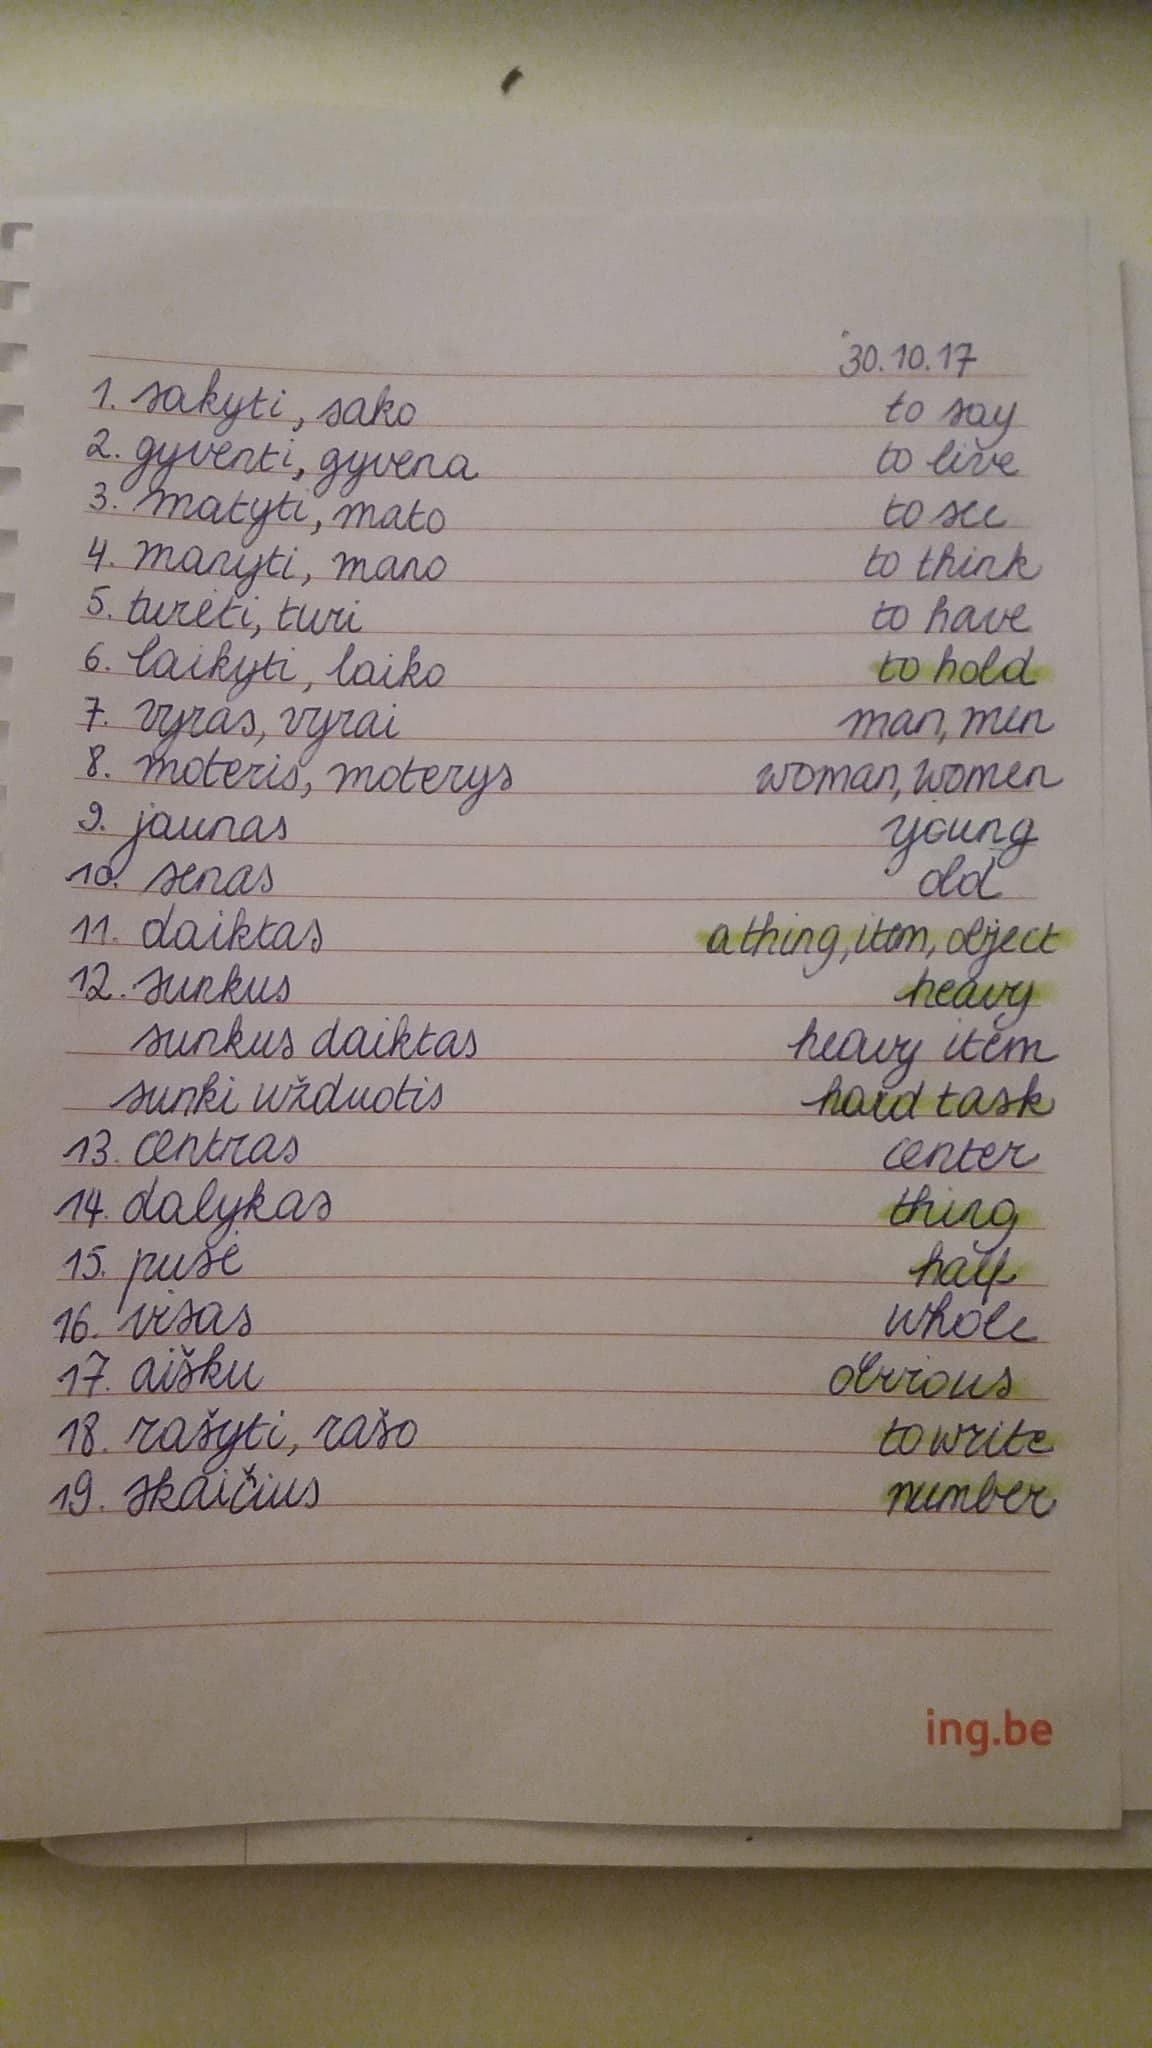 30.10.17
1. sakyti, sako to say
2. gyventi, gyvena to live
3. matyti, mato to see
4. manyti, mano to think
5. turėti, turi to have
6. laikyti, laiko to hold
7. vyras, vyrai man, men
8. moteris, moterys woman, women
9. jaunas young
10. senas old
11. daiktas a thing, item, object
12. sunkus heavy
sunkus daiktas heavy item
sunki užduotis hard task
13. centras center
14. dalykas thing
15. pusė half
16. visas whole
17. aišku obvious
18. rašyti, rašo to write
19. skaičius number
ing.be